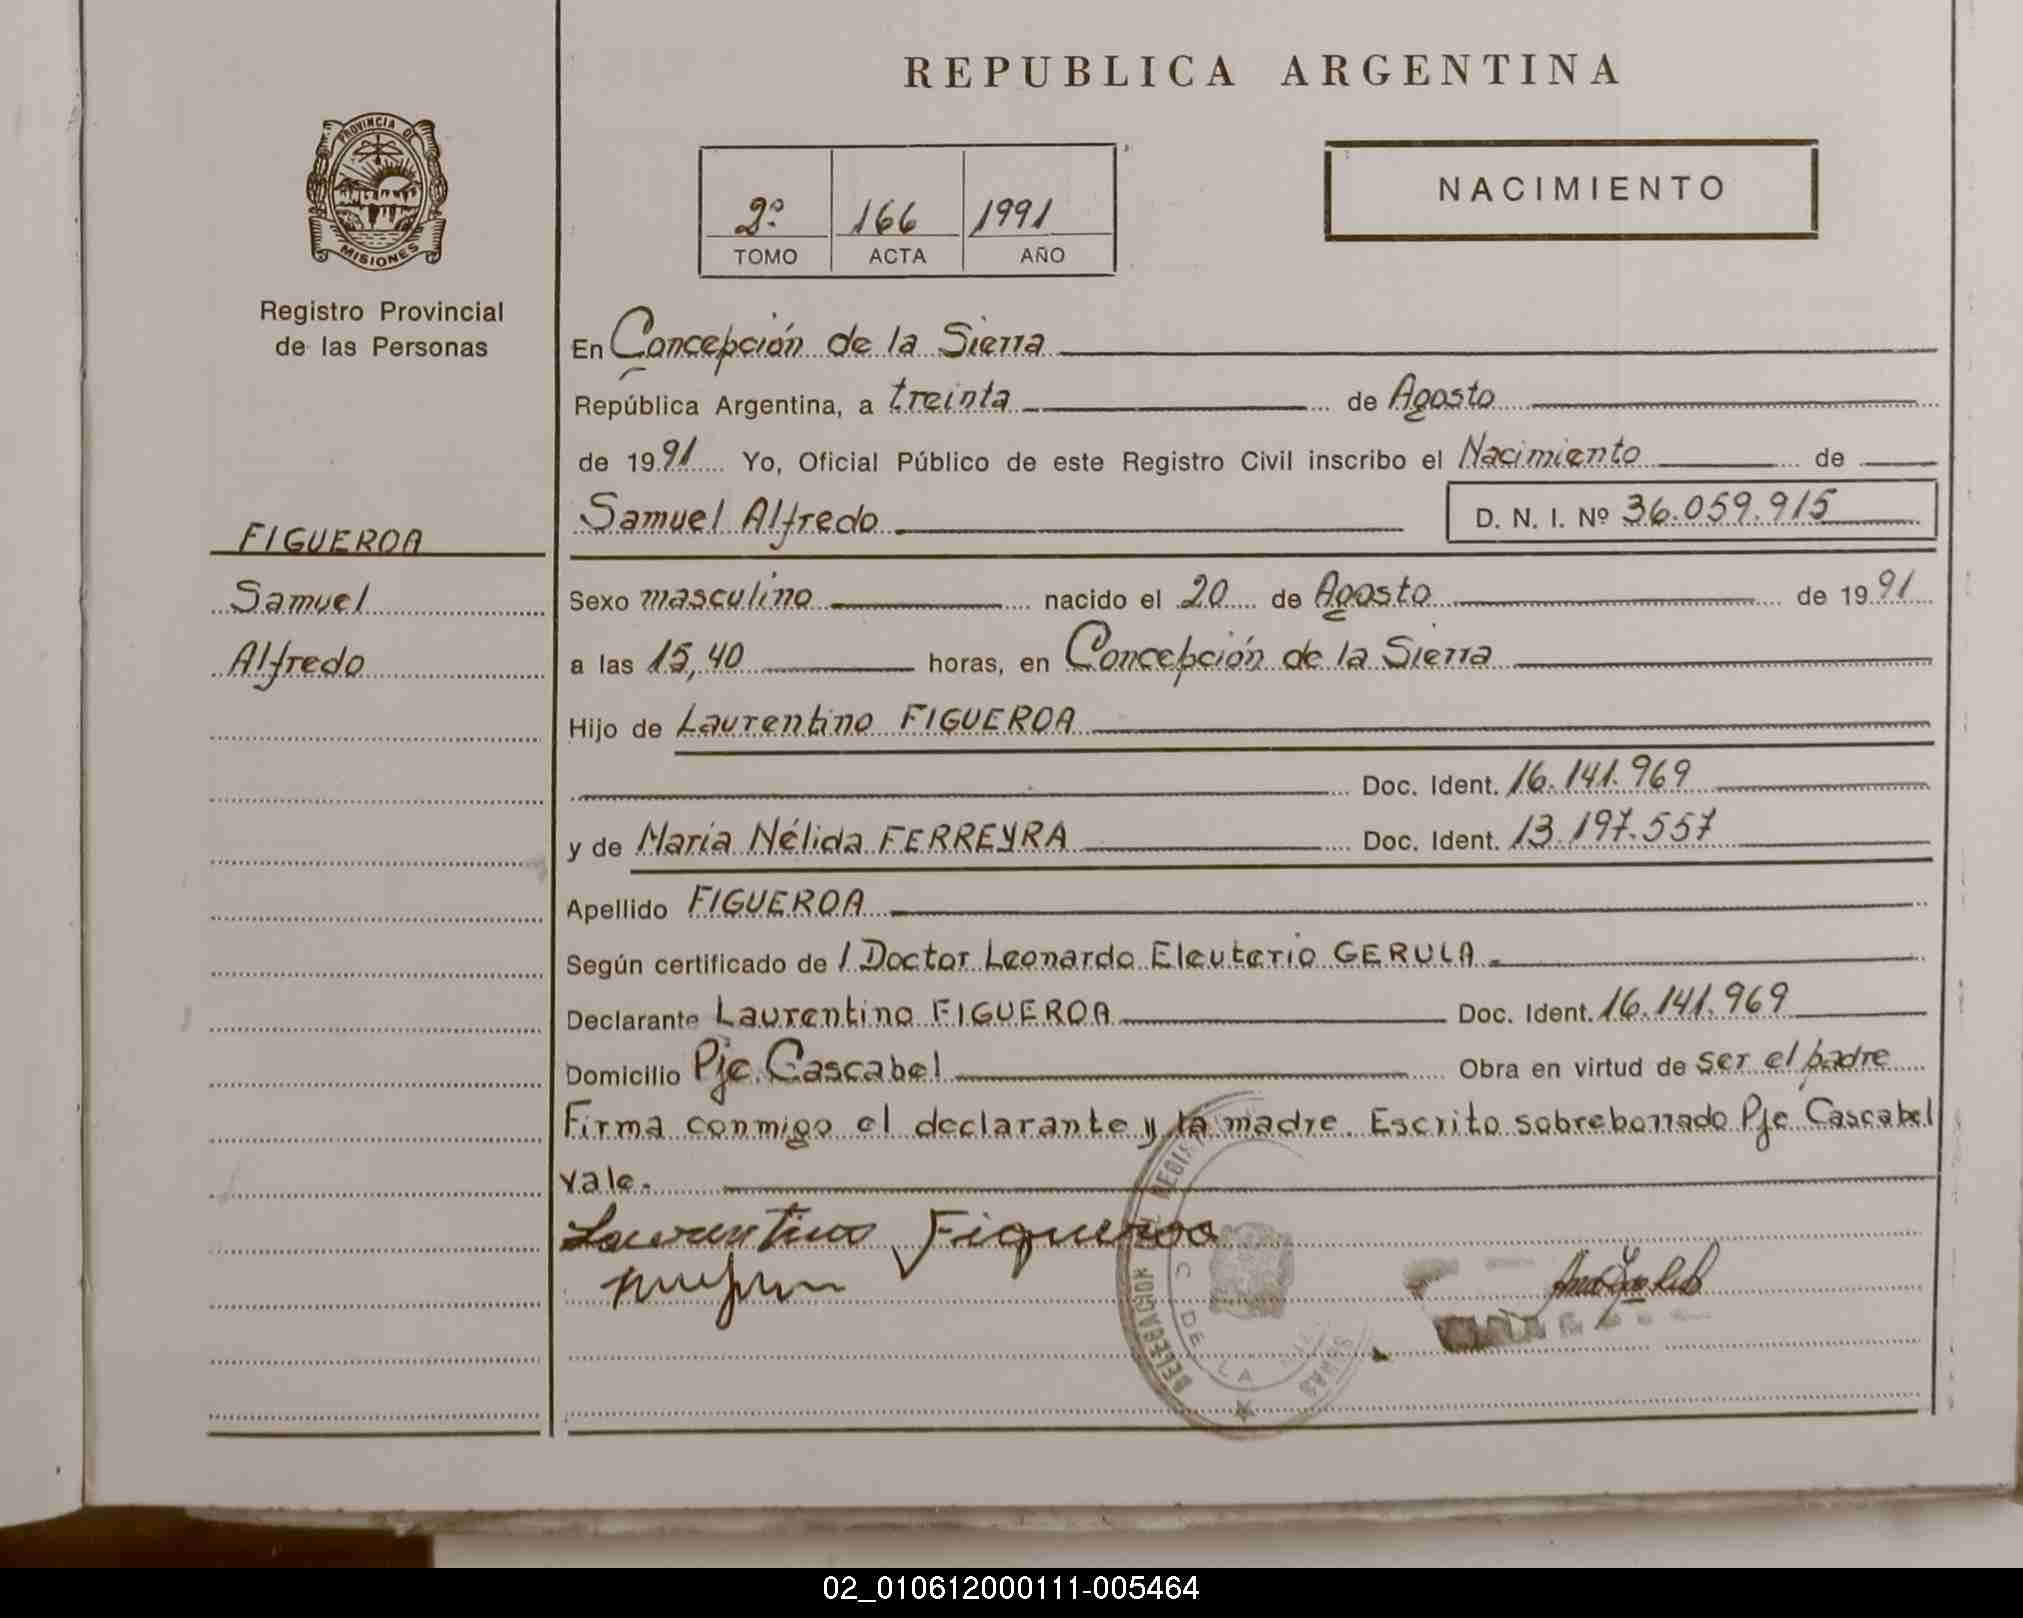 REPUBLICA ARGENTINA
PROVINCIA DE
MISIONES
Registro Provincial
de las Personas
2º 166 1991
TOMO ACTA AÑO
NACIMIENTO
FIGUEROA
Samuel
Alfredo
En Concepción de la Sierra
República Argentina, a treinta de Agosto
de 1991 Yo, Oficial Público de este Registro Civil inscribo el Nacimiento de
Samuel Alfredo D. N. I. Nº 36.059.915
Sexo masculino nacido el 20 de Agosto de 1991
a las 15,40 horas, en Concepción de la Sierra
Hijo de Laurentino FIGUEROA
Doc. Ident. 16.141.969
y de María Nélida FERREYRA Doc. Ident. 13.197.557
Apellido FIGUEROA
Según certificado de l Doctor Leonardo Eleuterio GERULA.
Declarante Laurentino FIGUEROA Doc. Ident. 16.141.969
Domicilio Pje. Cascabel Obra en virtud de ser el padre
Firma conmigo el declarante y la madre. Escrito sobreborrado Pje Cascabel
vale.
Laurentino Figueroa
DELEGACION DE LA
02_010612000111-005464